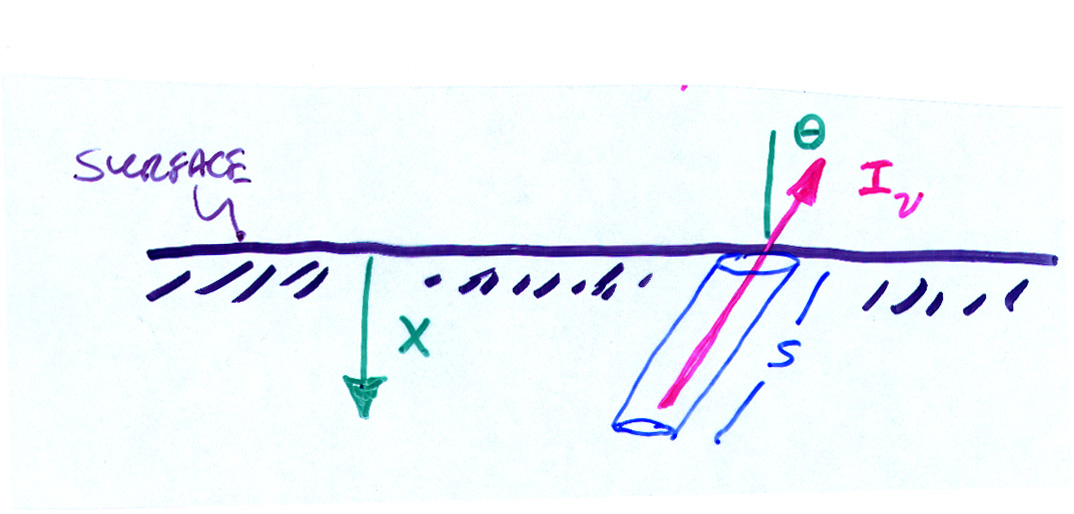 SURFACE
θ
Iν
X
S